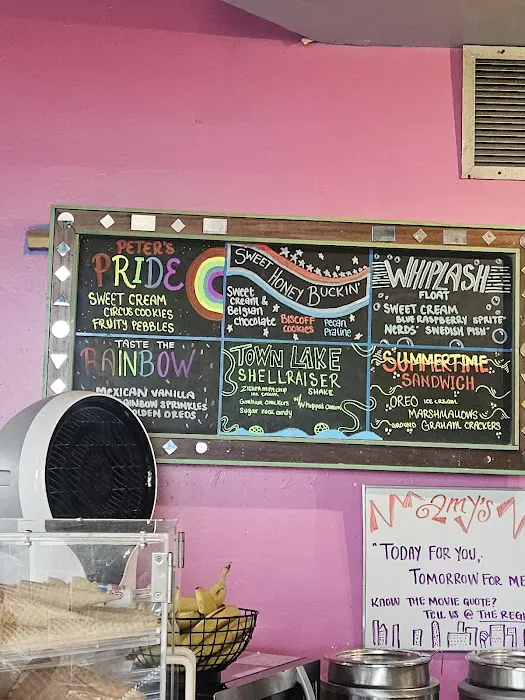 PETER'S
PRIDE
SWEET CREAM
CIRCUS COOKIES
FRUITY PEBBLES
SWEET
HONEY BUCKIN'
Sweet
cream &
Belgian
chocolate
BISCOFF
COOKIES
Pecan
Praline
WHIPLASH
FLOAT
SWEET CREAM
BLUE RASPBERRY SPRITE
NERDS SWEDISH FISH
TASTE THE
RAINBOW
MEXICAN VANILLA
RAINBOW SPRINKLES
GOLDEN OREOS
TOWN LAKE
SHELLRAISER
SHAKE
ice cream
Graham crackers
w/ Whipped Cream
Sugar rock candy
SUMMERTIME
SANDWICH
OREO ICE CREAM
MARSHMALLOWS
GROUND GRAHAM CRACKERS
Amy's
"TODAY FOR YOU,
TOMORROW FOR ME
KNOW THE MOVIE QUOTE?
TELL US @ THE REGI